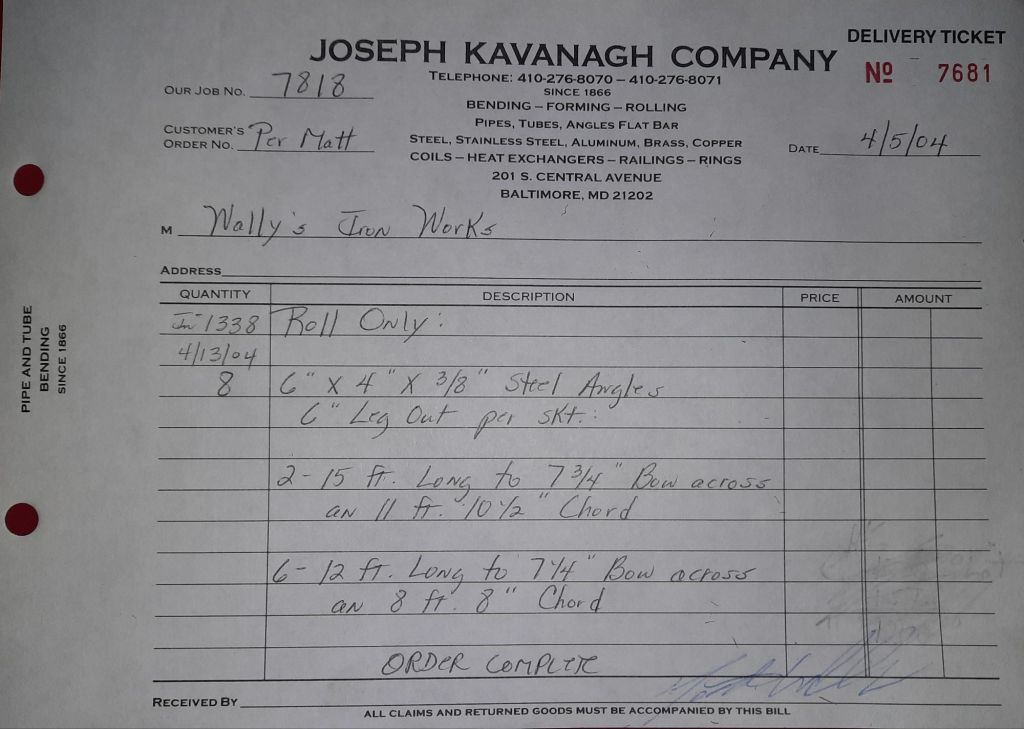 DELIVERY TICKET
JOSEPH KAVANAGH COMPANY
Nº 7681
TELEPHONE: 410-276-8070 – 410-276-8071
SINCE 1866
OUR JOB NO. 7818
BENDING – FORMING – ROLLING
PIPES, TUBES, ANGLES FLAT BAR
CUSTOMER'S ORDER NO. Per Matt
STEEL, STAINLESS STEEL, ALUMINUM, BRASS, COPPER
DATE 4/5/04
COILS – HEAT EXCHANGERS – RAILINGS – RINGS
201 S. CENTRAL AVENUE
BALTIMORE, MD 21202
M Wally's Iron Works
ADDRESS
QUANTITY DESCRIPTION PRICE AMOUNT
In 1338 Roll Only:
4/13/04
8 6" X 4" X 3/8" Steel Angles
6" Leg Out per skt.:
2 - 15 ft. Long to 7 3/4" Bow across
an 11 ft. 10 1/2" Chord
6 - 12 ft. Long to 7 1/4" Bow across
an 8 ft. 8" Chord
ORDER COMPLETE
RECEIVED BY
ALL CLAIMS AND RETURNED GOODS MUST BE ACCOMPANIED BY THIS BILL
PIPE AND TUBE
BENDING
SINCE 1866